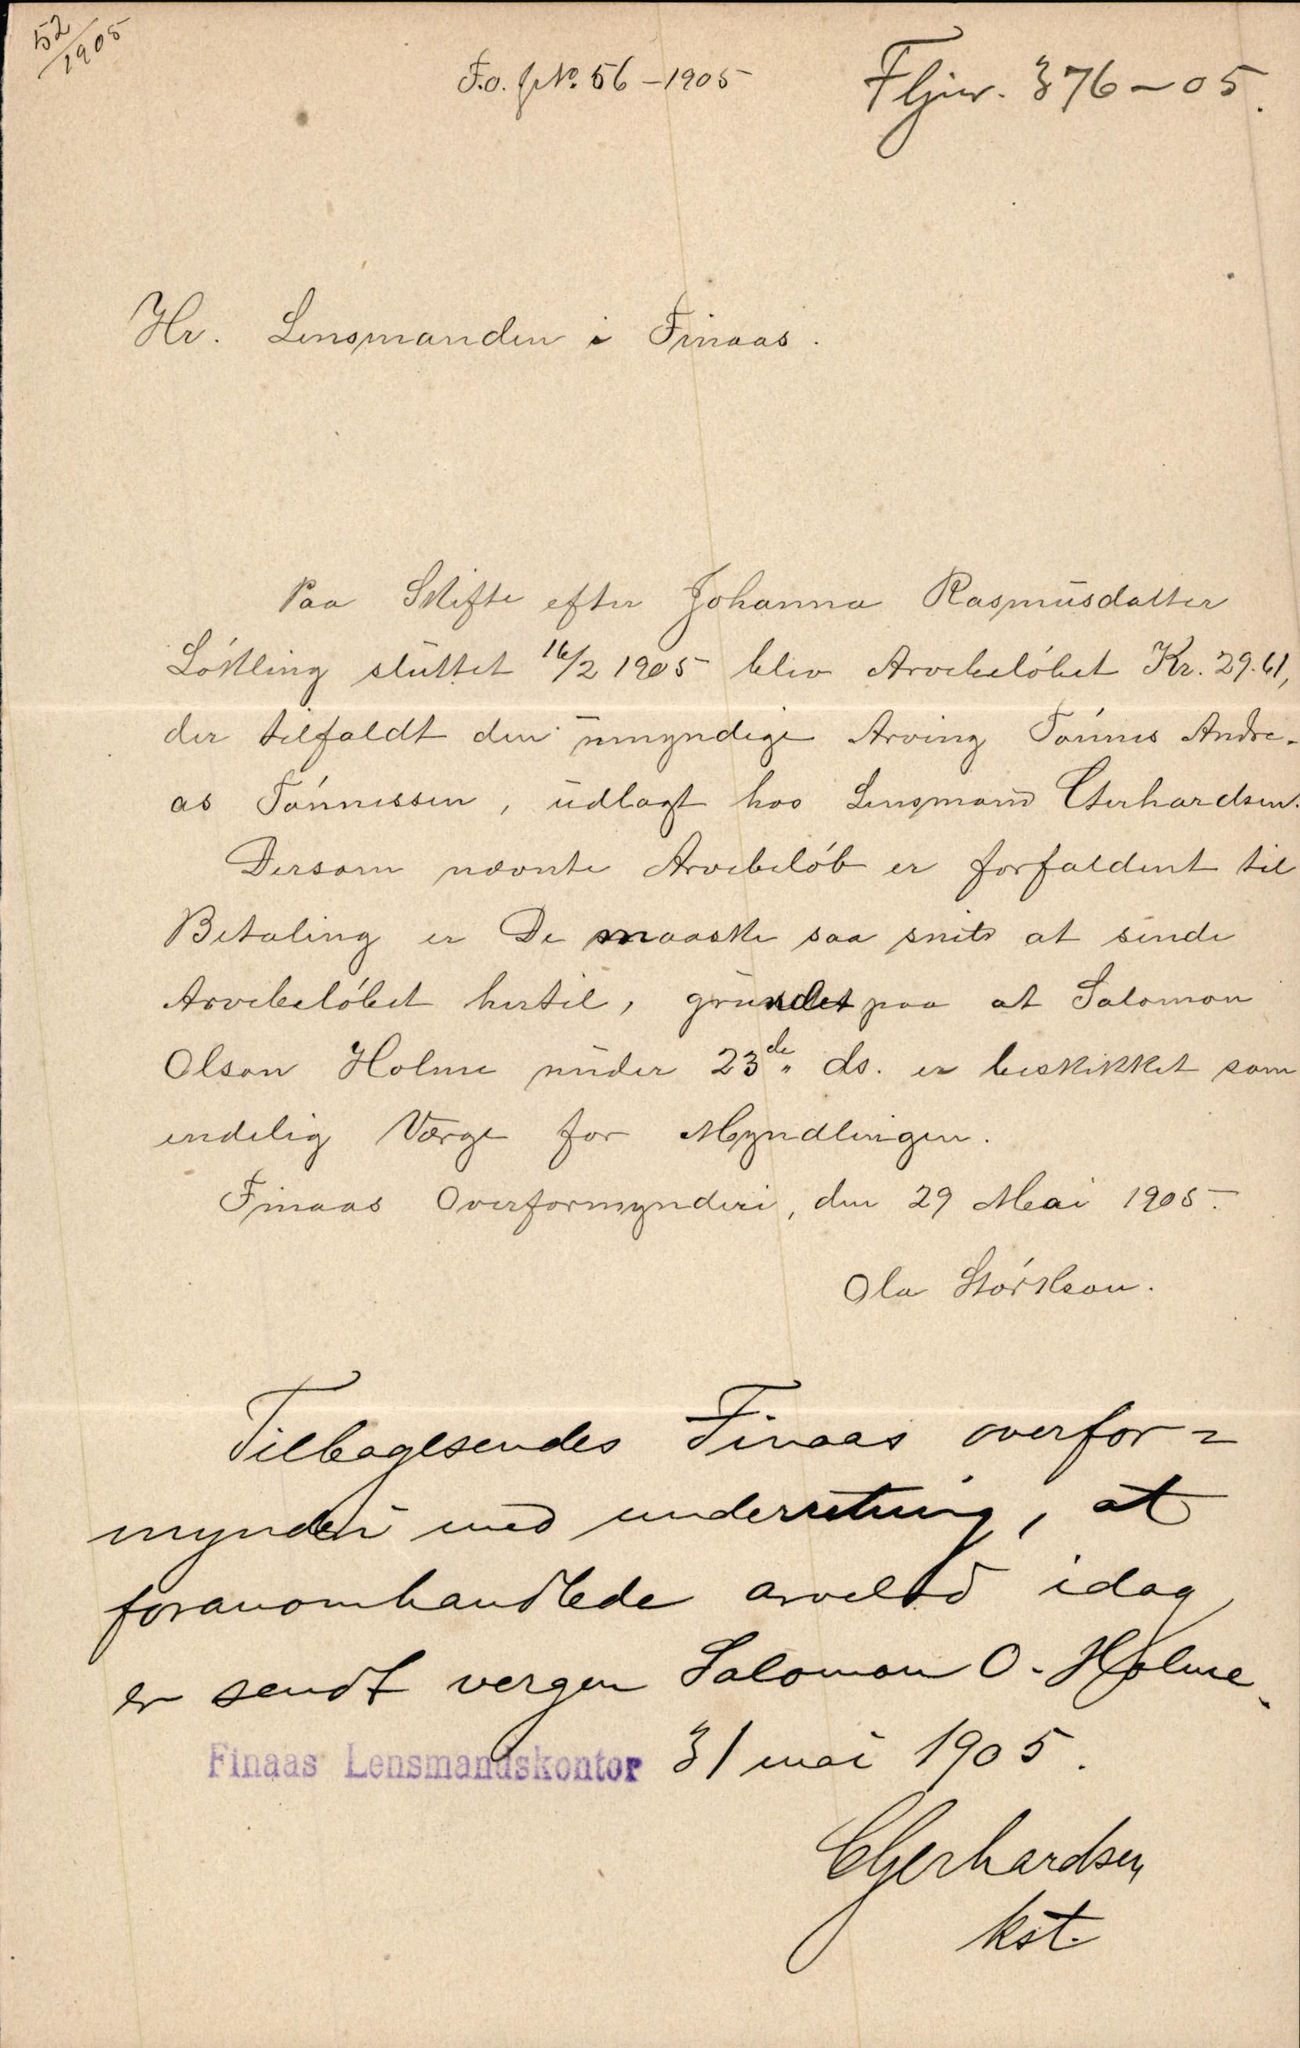 52/1905
F.o. jNo. 56 - 1905
Fljnr. 376 - 05.
Hr. Lensmanden i Finaas.
Paa Skifte efter Johanna Rasmusdatter
Løkling sluttet 16/2 1905 blev Arvebeløbet Kr. 29.61,
der tilfaldt den umyndige Arving Tønnes Andre-
as Tønnessen, udlagt hos Lensmand Gerhardsen.
Dersom nævnte Arvebeløb er forfaldent til
Betaling er De maaske saa snild at sende
Arvebeløbet hertil, grundet paa at Salomon
Olson Holme under 23de ds. er beskikket som
endelig Værge for Myndlingen.
Finaas Overformynderi, den 29 Mai 1905.
Ola Størkson.
Tilbagesendes Finaas overfor=
mynderi med underretning, at
foranomhandlede arvelod idag
er sendt vergen Salomon O. Holme.
Finaas Lensmandskontor 31 mai 1905.
Gerhardsen
kst.